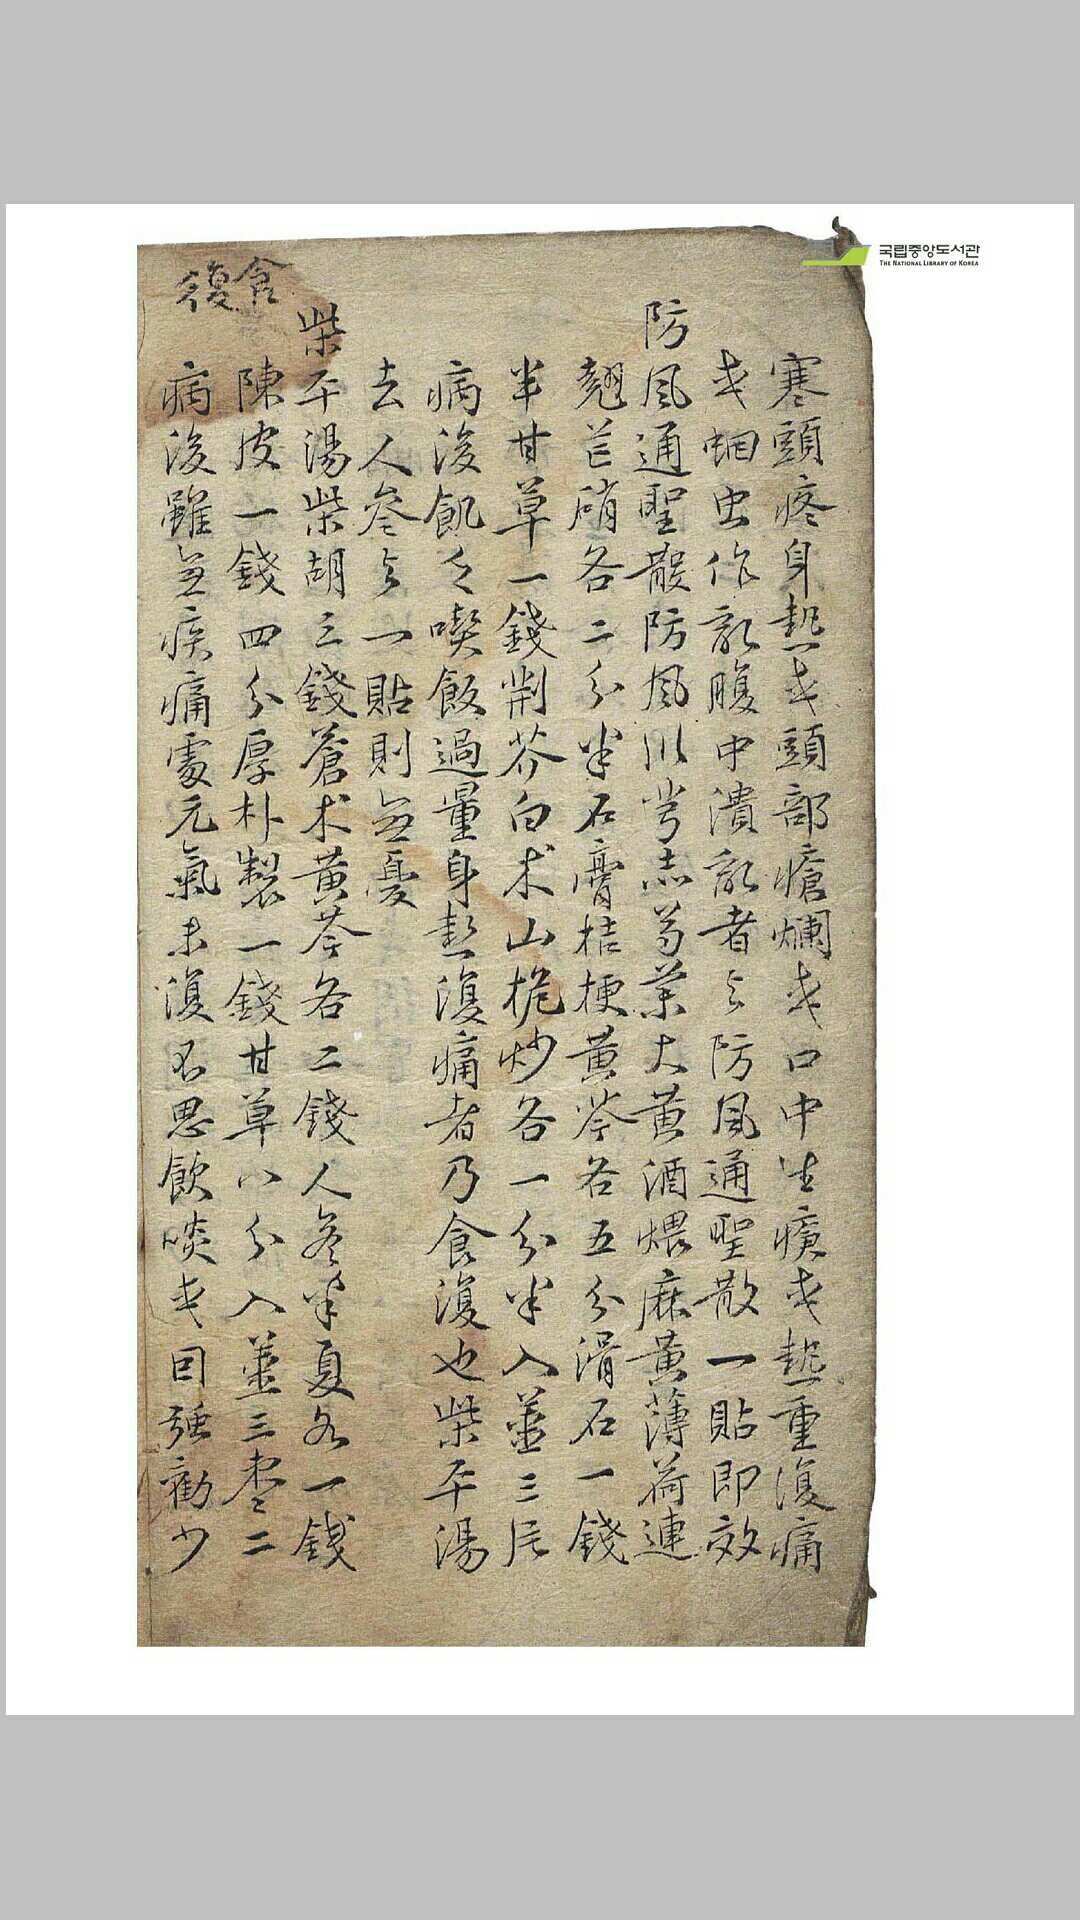 국립중앙도서관
THE NATIONAL LIBRARY OF KOREA
寒頭疼身熱或頭部瘡爛或口中生瘡或熱重復痛
或蛔虫作亂腹中潰亂者与防風通聖散一貼即效
防風通聖散防風川芎赤芍藥大黃酒煨麻黃薄荷連
翹芒硝各二分半石膏桔梗黃芩各五分滑石一錢
半甘草一錢荊芥白朮山梔炒各一分半入薑三片
病後飢乏喫飯過量身熱復痛者乃食復也柴平湯
去人參与一貼則無憂
柴平湯柴胡三錢蒼朮黃芩各二錢人參半夏各一錢
陳皮一錢四分厚朴製一錢甘草八分入薑三棗二
食復
病後雖無疾痛處元氣未復不思飲啖或因強勸少